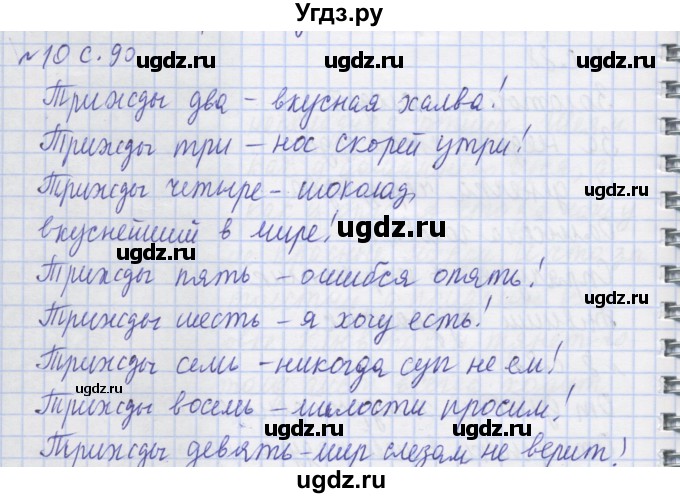 Угдз.ру
№10 с. 90
ugdz.ru ugdz.ru ugdz.ru
Трижды два – вкусная халва!
ugdz.ru
Трижды три – нос скорей утри!
ugdz.ru ugdz.ru
Трижды четыре – шоколад,
ugdz.ru
вкуснейший в мире!
ugdz.ru ugdz.ru
Трижды пять – ошибся опять!
ugdz.ru
Трижды шесть – я хочу есть!
ugdz.ru ugdz.ru
Трижды семь – никогда суп не ем!
ugdz.ru ugdz.ru
Трижды восемь – милости просим!
ugdz.ru ugdz.ru
Трижды девять – мир слезам не верит!
ugdz.ru